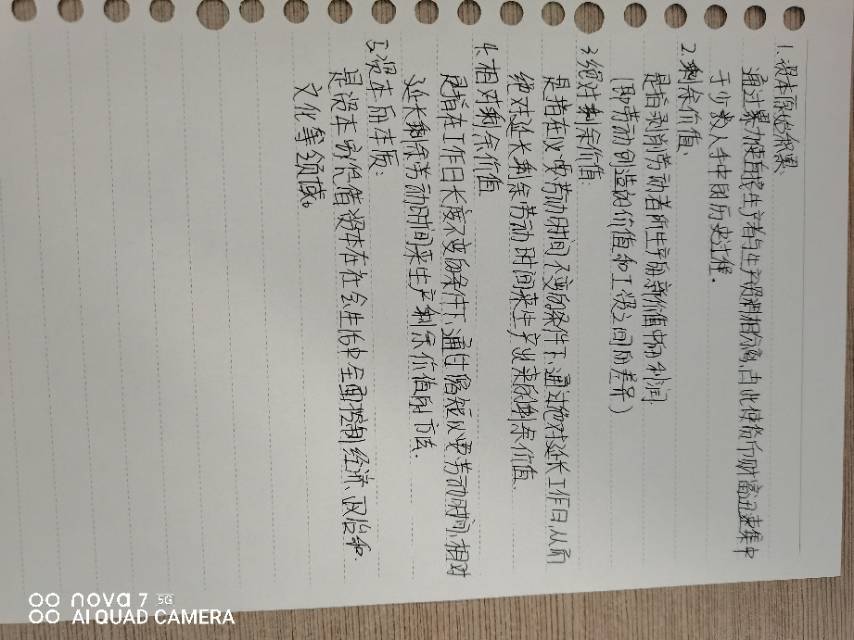 1.资本原始积累:
通过暴力使直接生产者与生产资料相分离,由此使货币财富迅速集中
于少数人手中的历史过程.
2.剩余价值:
是指剥削劳动者所生产的新价值中的利润.
(即劳动创造的价值和工资之间的差异)
3.绝对剩余价值:
是指在必要劳动时间不变的条件下,通过绝对延长工作日,从而
绝对延长剩余劳动时间来生产出来的剩余价值.
4.相对剩余价值
是指在工作日长度不变的条件下,通过缩短必要劳动时间,相对
延长剩余劳动时间来生产剩余价值的方法.
5.资本的本质:
是资本的凭借资本在社会生活中全面控制经济、政治和
文化等领域。
nova 7 5G
AI QUAD CAMERA